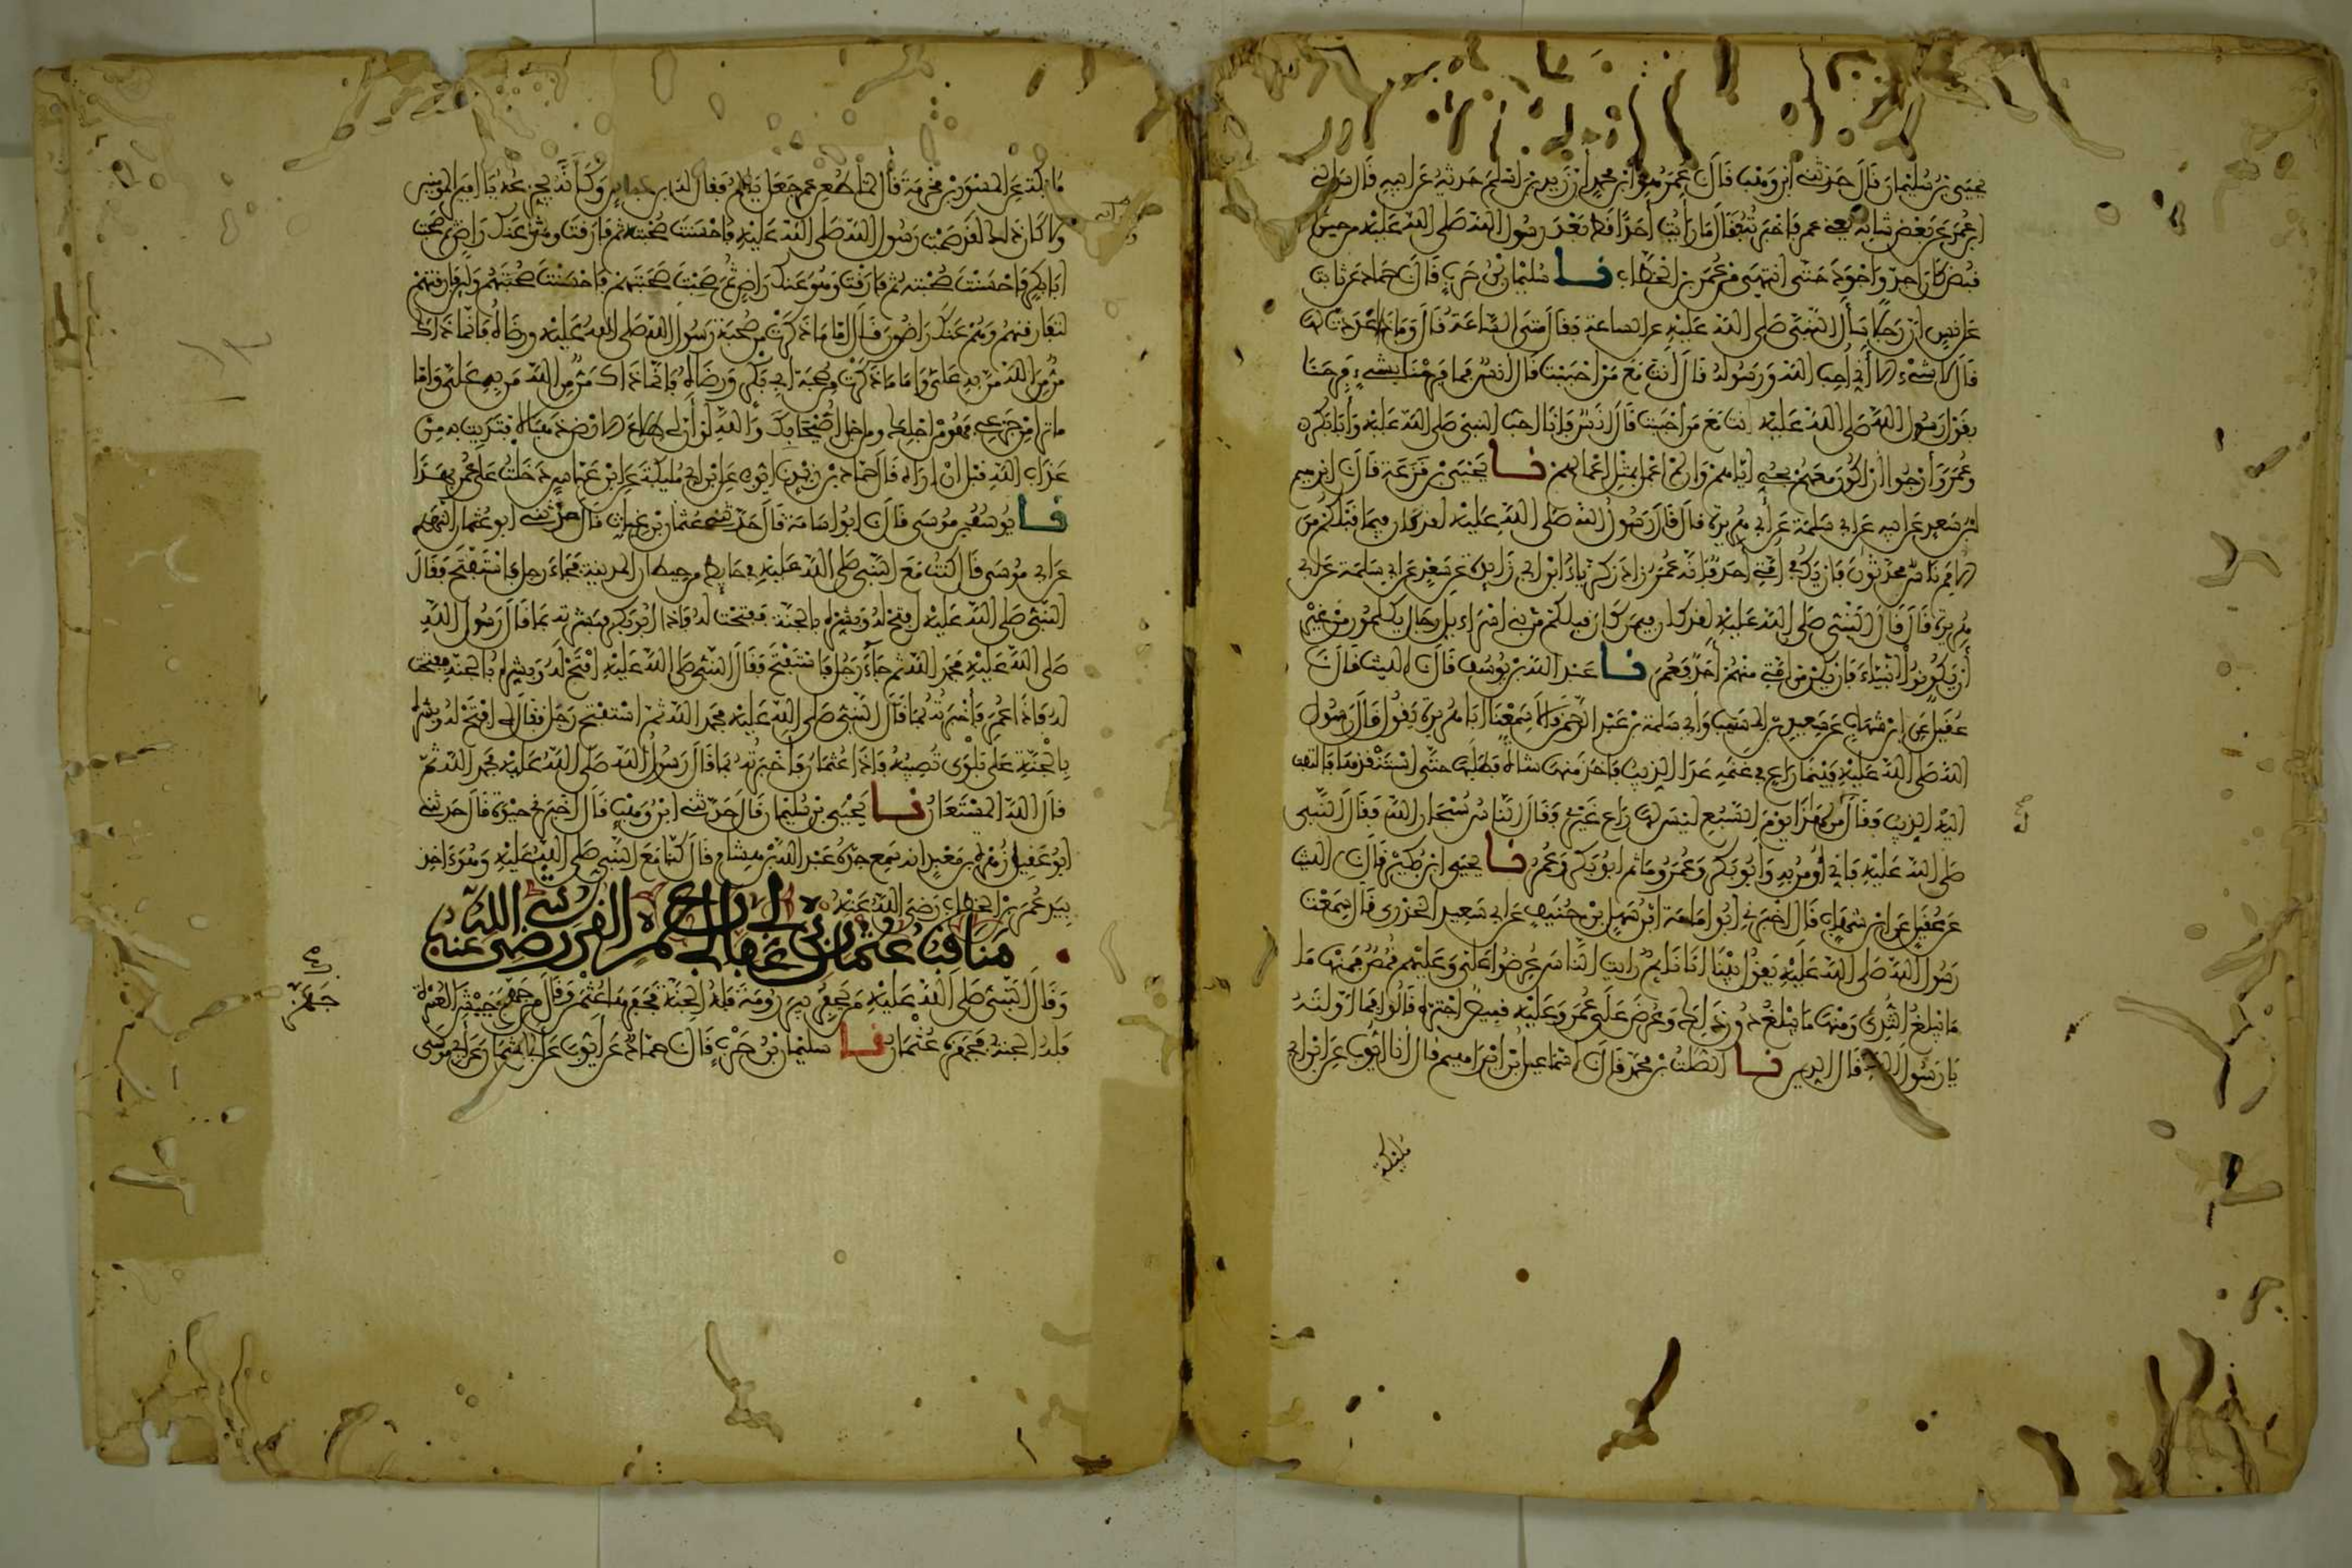 يحيى بن سليمان قال حدثني ابن وهب قال عمر هو ابن محمد ان زيد بن اسلم حدثه عن ابيه قال سألني
ابن عمر عن بعض شانه يعني عمر فاخبرته فقال ما رايت احدا قط بعد رسول الله صلى الله عليه من حين
قبض كان اجد واجود حتى انتهى من عمر بن الخطاب نا سليمان بن حرب قال حماد عن ثابت
عن انس ان رجلا سأل النبي صلى الله عليه عن الساعة فقال متى الساعة قال وما ذا اعددت لها
قال لا شيء الا اني احب الله ورسوله قال انت مع من احببت قال انس فما فرحنا بشيء فرحنا
بقول رسول الله صلى الله عليه انت مع من احببت قال انس فانا احب النبي صلى الله عليه وابا بكر
وعمر وارجوا ان اكون معهم بحبي اياهم وان لم اعمل بمثل اعمالهم نا يحيى بن قزعة قال ابرهيم
ابن سعد عن ابيه عن ابي سلمة عن ابي هريرة قال قال رسول الله صلى الله عليه لقد كان فيما قبلكم من
الامم ناس محدثون فان يك في امتي احد فانه عمر زاد زكرياء ابن ابي زايدة عن سعد عن ابي سلمة عن ابي
هريرة قال قال النبي صلى الله عليه لقد كان فيمن كان قبلكم من بني اسراءيل رجال يكلمون من غير
ان يكونوا انبياء فان يكن من امتي منهم احد فعمر نا عبد الله بن يوسف قال الليث قال
عقيل عن ابن شهاب عن سعيد بن المسيب وابي سلمة بن عبد الرحمن قالا سمعنا ابا هريرة يقول قال رسول
الله صلى الله عليه بينما راع في غنمه عدا الذيب فاخذ منها شاة فطلبها حتى استنقذها فالتفت
اليه الذيب فقال من لها يوم السبع ليس لها راع غيري فقال الناس سبحان الله فقال النبي
صلى الله عليه فاني اومن به وابو بكر وعمر وما ثم ابو بكر وعمر نا يحيى ابن بكير قال الليث
عن عقيل عن ابن شهاب قال اخبرني ابو امامة ابن سهل بن حنيف عن ابي سعيد الخدري قال سمعت
رسول الله صلى الله عليه يقول بينا انا نايم رايت الناس عرضوا علي وعليهم قمص فمنها ما
ما يبلغ الثدي ومنها ما يبلغ دون ذلك وعرض علي عمر وعليه قميص اجتره قالوا فما اولته
يا رسول الله قال الدين نا الصلت بن محمد قال اسماعيل بن ابراهيم قال انا ايوب عن ابن ابي
مليكة
مليكة عن المسور بن مخرمة قال لما طعن عمر جعل يالم فقال له ابن عباس وكأنه يجزعه يا امير المومنين
ولا كان ذلك لقد صحبت رسول الله صلى الله عليه فاحسنت صحبته ثم فارقت وهو عنك راض ثم صحبت
ابا بكر فاحسنت صحبته ثم فارقت وهو عنك راض ثم صحبت صحبتهم فاحسنت صحبتهم ولين فارقتهم
لتفارقنهم وهم عنك راضون قال اما ما ذكرت من صحبة رسول الله صلى الله عليه ورضاه فانما ذاك
من من الله من به علي واما ما ذكرت من صحبة ابي بكر ورضاه فانما ذاك من من الله من به علي واما
ما ترا من جزعي فهو من اجلك ومن اجل اصحابك والله لو ان لي طلاع الارض ذهبا لافتديت به من
عذاب الله قبل ان اراه قال حماد بن زيد نا ايوب عن ابن ابي مليكة عن ابن عباس دخلت على عمر بهذا
نا يوسف بن موسى قال ابو اسامة قال حدثني عثمان بن غياث قال حدثني ابو عثمان النهدي
عن ابي موسى قال كنت مع النبي صلى الله عليه في حايط من حيطان المدينة فجاء رجل فاستفتح فقال
النبي صلى الله عليه افتح له وبشره بالجنة ففتحت له فاذا ابو بكر فبشرته بما قال رسول الله
صلى الله عليه فحمد الله ثم جاء رجل فاستفتح فقال النبي صلى الله عليه افتح له وبشره بالجنة ففتحت
له فاذا عمر فاخبرته بما قال النبي صلى الله عليه فحمد الله ثم استفتح رجل فقال لي افتح له وبشره
بالجنة على بلوى تصيبه فاذا عثمان فاخبرته بما قال رسول الله صلى الله عليه فحمد الله ثم
قال الله المستعان نا يحيى بن سليمان قال حدثني ابن وهب قال اخبرني حيوة قال حدثني
ابو عقيل زهرة بن معبد انه سمع جده عبد الله بن هشام قال كنا مع النبي صلى الله عليه وهو ءاخذ
بيد عمر بن الخطاب رضي الله عنه
مناقب عثمان بن عفان ابي عمرو القرشي رضي الله عنه
وقال النبي صلى الله عليه من يحفر بير رومة فله الجنة فحفرها عثمن وقال من جهز جيش العسرة
فله الجنة فجهزه عثمان نا سليمان بن حرب قال حماد عن ايوب عن ابي عثمان عن ابي موسى
جهز